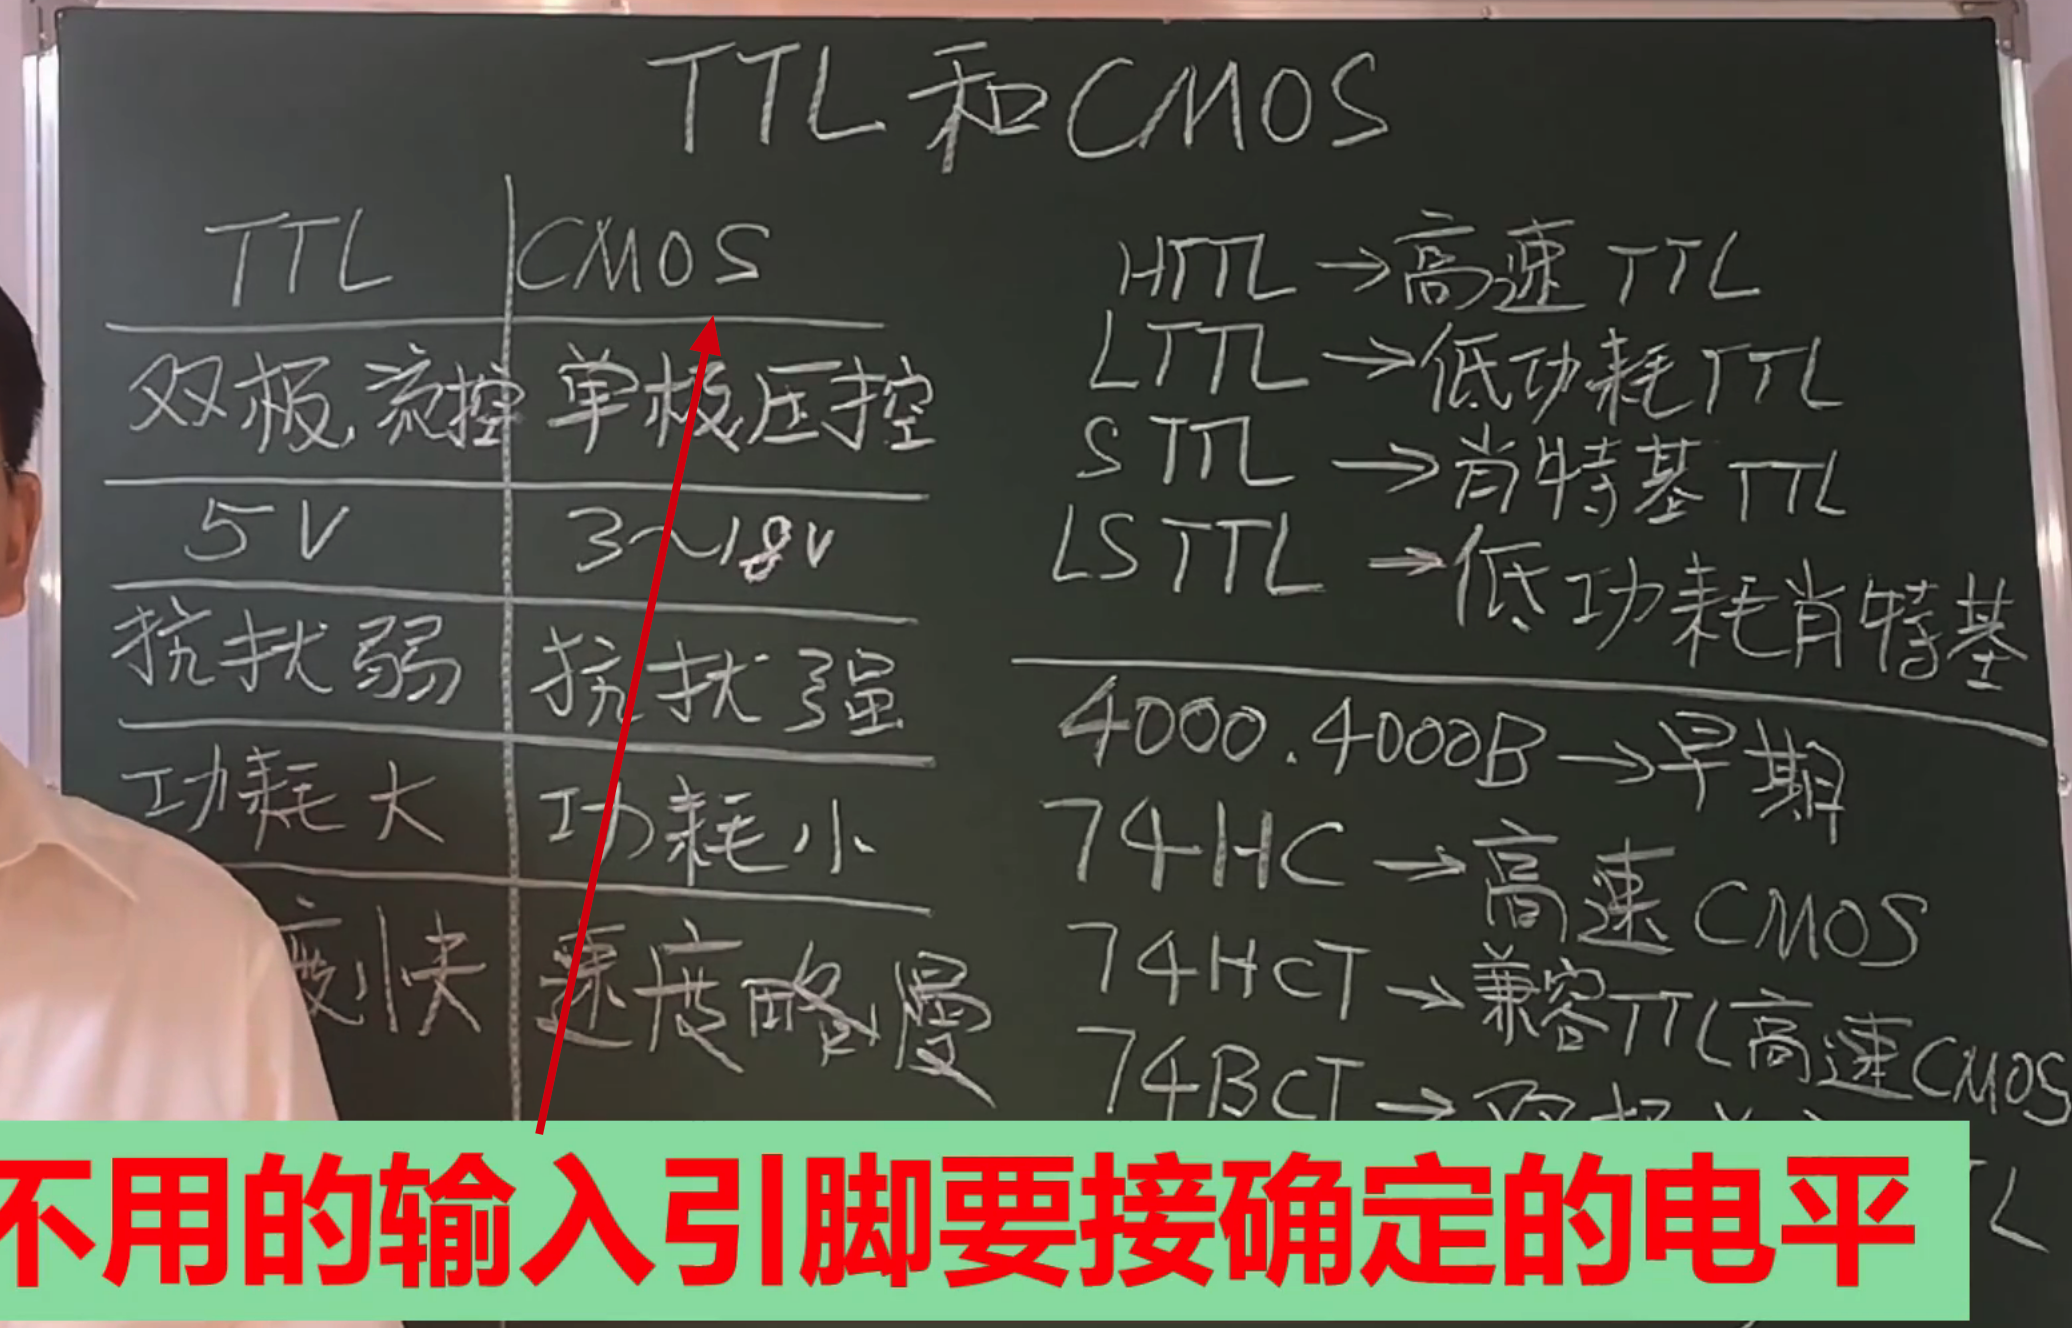 TTL和CMOS
TTL CMOS
双极,流控 单极压控
5V 3~18V
抗扰弱 抗扰强
功耗大 功耗小
度快 速度略慢
HTTL→高速TTL
LTTL→低功耗TTL
STTL→肖特基TTL
LSTTL→低功耗肖特基
4000.4000B→早期
74HC→高速CMOS
74HCT→兼容TTL高速CMOS
74BCT→
TL
不用的输入引脚要接确定的电平